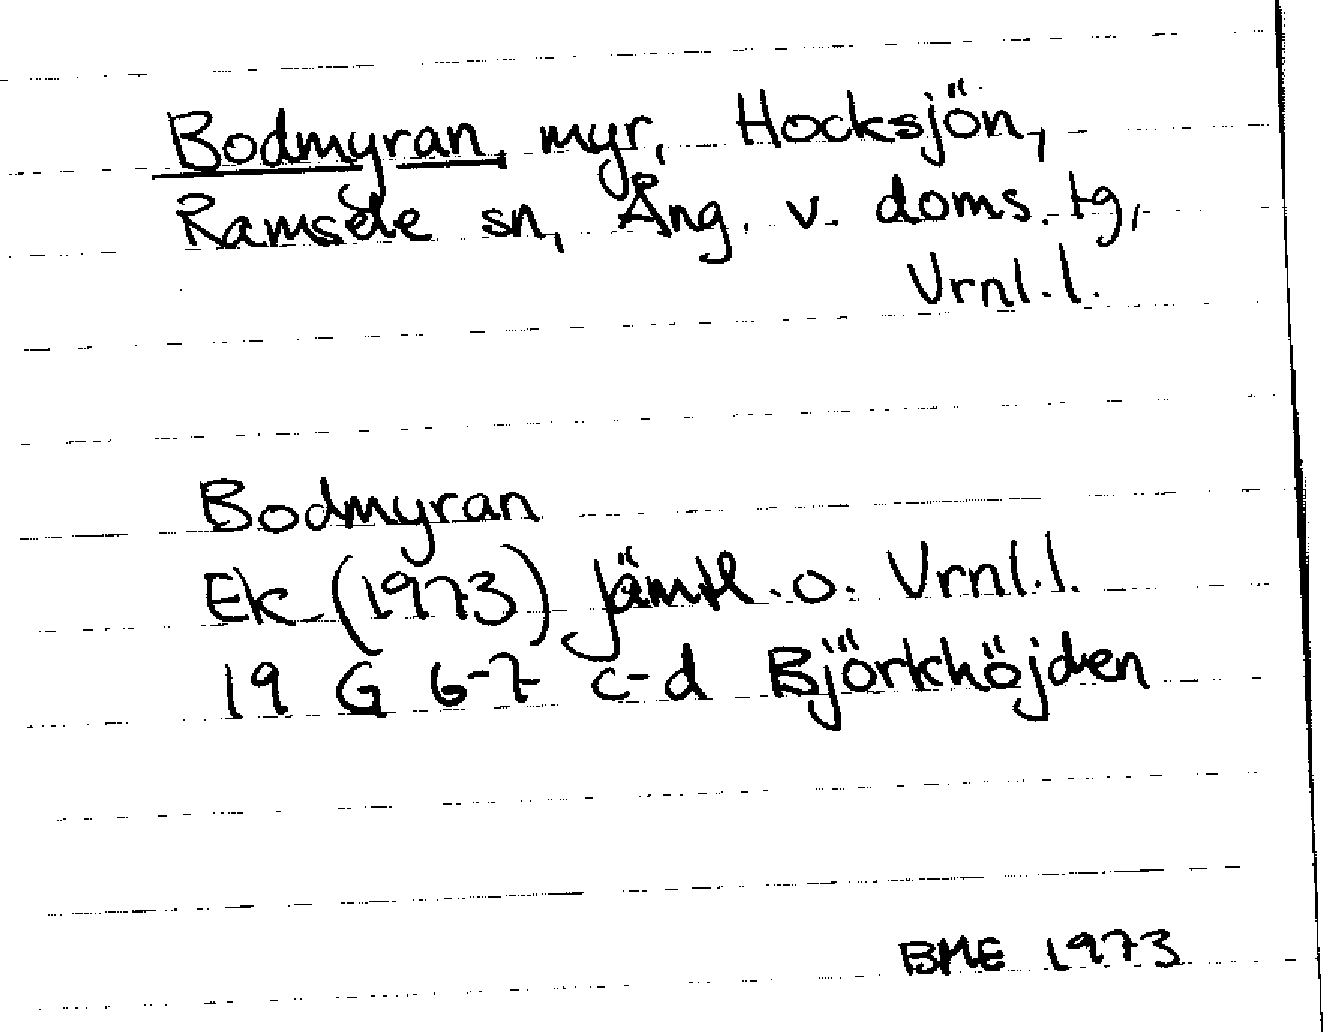 Bodmyran, myr, Hocksjön,
Ramsele sn, Ång. v. doms. tg,
Vrnl. l.
Bodmyran
Ek (1973) Jämtl. o. Vrnl. l.
19 G 6-7 c-d Björkhöjden
BME 1973